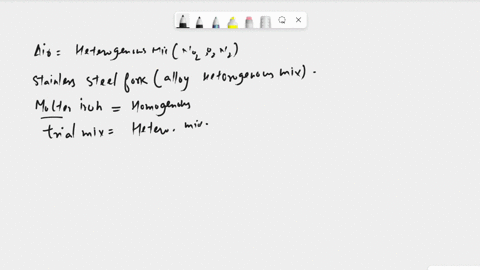 Air = Heterogenous Mix (N₂, O₂, N₂)
Stainless steel fork (alloy heterogenous mix).
Molten iron = Homogenous
trial mix = Hetero. mix.